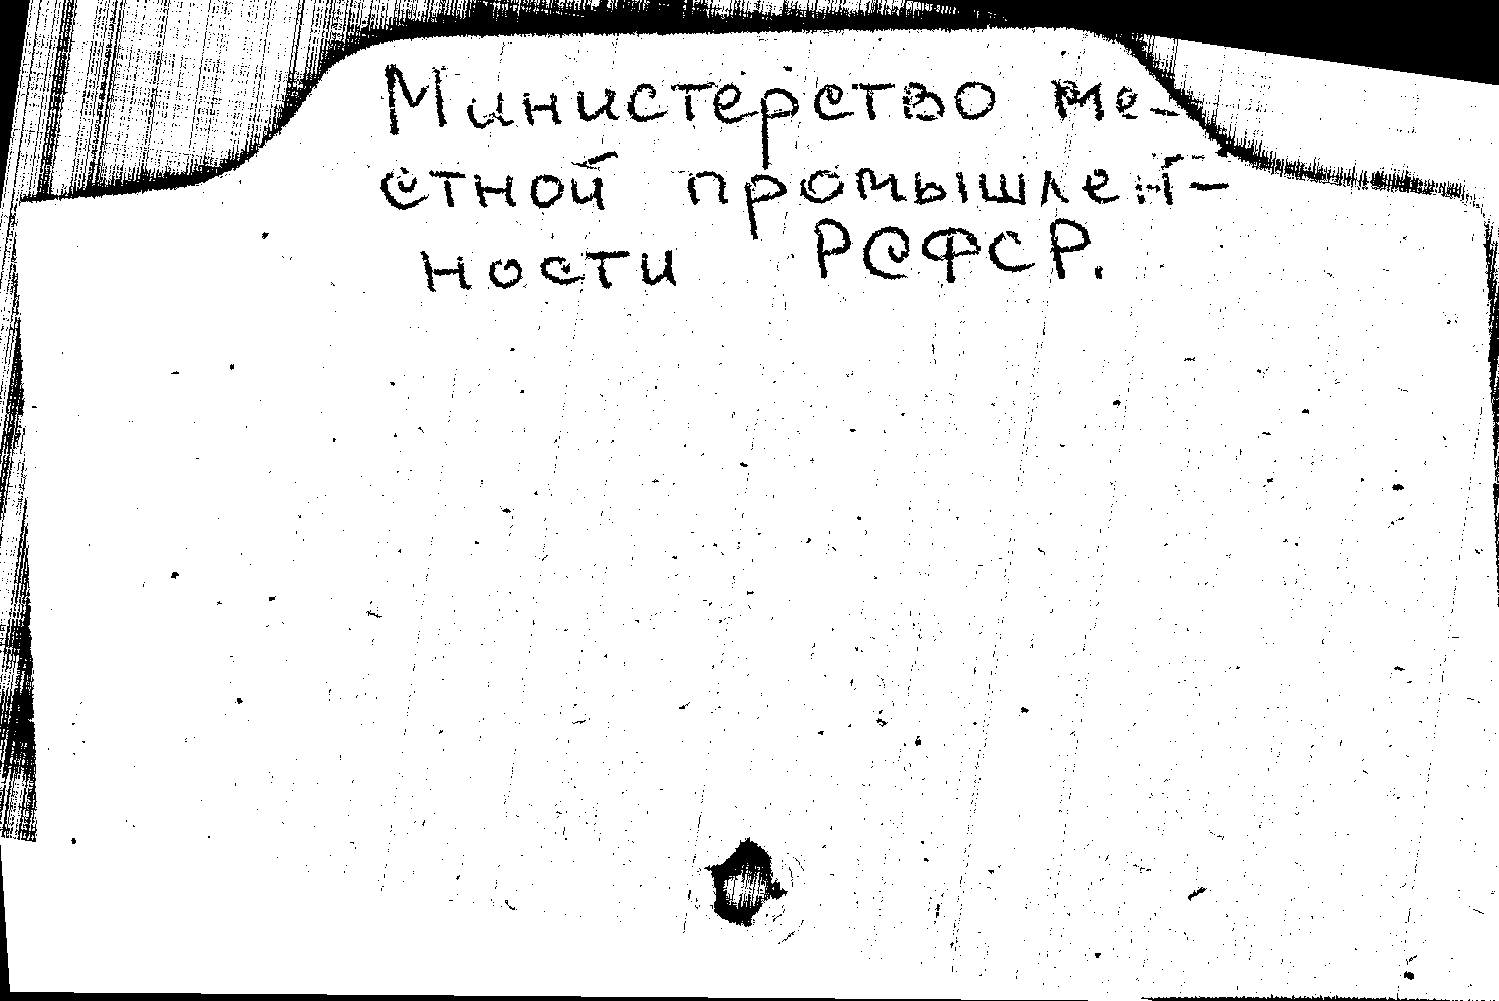 Министерство ме-
стной промышлен-
ности РСФСР.